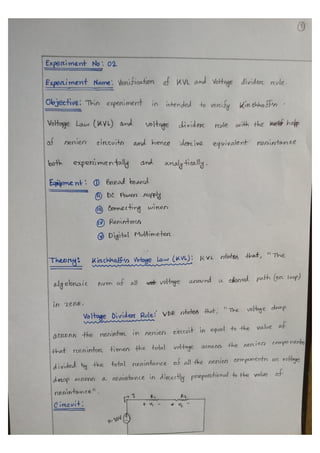 1
Experiment No: 02
Experiment Name: Verification of KVL and Voltage divider rule.
Objective: This experiment is intended to verify Kirchhoff's
Voltage Law (KVL) and voltage divider rule with the help
of series circuits and hence derive equivalent resistance
both experimentally and analytically.
Equipment: i Bread board
ii DC Power supply
iii Connecting wires
iv Resistors
v Digital Multimeter.
Theory: Kirchhoff's Votage Law (KVL): KVL states that, "The
algebraic sum of all voltage around a closed path (or loop)
is zero.
Voltage Divider Rule: VDR states that, "The voltage drop
across the resistor in series circuit is equal to the value of
that resistor times the total voltage across the series components
divided by the total resistance of all the series components or voltage
drop across a resistance is directly proportional to the value of
resistance".
Circuit:
I R₁ R₂
+ V₁ - + V₂ -